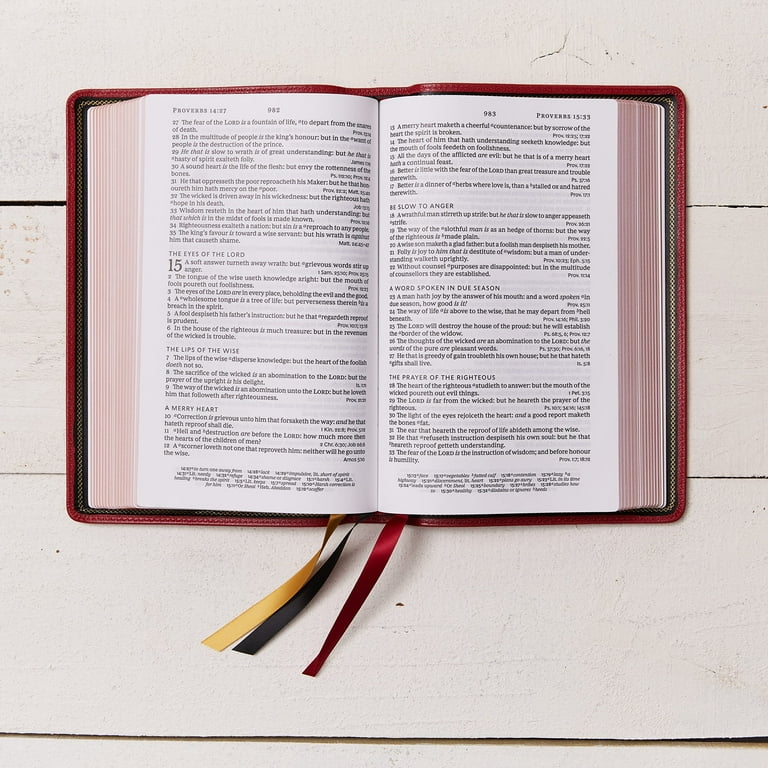 PROVERBS 14:27 982
27 The fear of the LORD is a fountain of life, to depart from the snares
of death. Prov. 13:14
28 In the multitude of people is the king's honour: but in the want of
people is the destruction of the prince.
29 He that is slow to wrath is of great understanding: but he that is
hasty of spirit exalteth folly. James 1:19
30 A sound heart is the life of the flesh: but envy the rottenness of the
bones.
31 He that oppresseth the poor reproacheth his Maker: but he that hon-
oureth him hath mercy on the poor.
32 The wicked is driven away in his wickedness: but the righteous hath
hope in his death.
33 Wisdom resteth in the heart of him that hath understanding: but
that which is in the midst of fools is made known.
34 Righteousness exalteth a nation: but sin is a reproach to any people.
35 The king's favour is toward a wise servant: but his wrath is against
him that causeth shame. Matt. 24:45-47
THE EYES OF THE LORD
15 A soft answer turneth away wrath: but grievous words stir up
anger. 1 Sam. 25:10; Prov. 25:15
2 The tongue of the wise useth knowledge aright: but the mouth of
fools poureth out foolishness.
3 The eyes of the LORD are in every place, beholding the evil and the good.
4 A wholesome tongue is a tree of life: but perverseness therein is a
breach in the spirit.
5 A fool despiseth his father's instruction: but he that regardeth reproof
is prudent.
6 In the house of the righteous is much treasure: but in the revenues
of the wicked is trouble.
THE LIPS OF THE WISE
7 The lips of the wise disperse knowledge: but the heart of the foolish
doeth not so.
8 The sacrifice of the wicked is an abomination to the LORD: but the
prayer of the upright is his delight.
9 The way of the wicked is an abomination unto the LORD: but he loveth
him that followeth after righteousness. Prov. 21:21
A MERRY HEART
10 Correction is grievous unto him that forsaketh the way: and he that
hateth reproof shall die.
11 Hell and destruction are before the LORD: how much more then
the hearts of the children of men? 2 Chr. 6:30; Job 26:6
12 A scorner loveth not one that reproveth him: neither will he go unto
the wise. Amos 5:10
983 PROVERBS 15:33
13 A merry heart maketh a cheerful countenance: but by sorrow of the
heart the spirit is broken. Prov. 12:25; 17:22
14 The heart of him that hath understanding seeketh knowledge: but
the mouth of fools feedeth on foolishness.
15 All the days of the afflicted are evil: but he that is of a merry heart
hath a continual feast. Prov. 17:22
16 Better is little with the fear of the LORD than great treasure and trouble
therewith. Ps. 37:16
17 Better is a dinner of herbs where love is, than a stalled ox and hatred
therewith. Prov. 17:1
BE SLOW TO ANGER
18 A wrathful man stirreth up strife: but he that is slow to anger appeaseth
strife. Prov. 26:21
19 The way of the slothful man is as an hedge of thorns: but the way
of the righteous is made plain. Prov. 22:5
20 A wise son maketh a glad father: but a foolish man despiseth his mother.
21 Folly is joy to him that is destitute of wisdom: but a man of under-
standing walketh uprightly. Prov. 10:23; Eph. 5:15
22 Without counsel purposes are disappointed: but in the multitude
of counsellors they are established. Prov. 11:14
A WORD SPOKEN IN DUE SEASON
23 A man hath joy by the answer of his mouth: and a word spoken in
due season, how good is it! Prov. 25:11
24 The way of life is above to the wise, that he may depart from hell
beneath. Prov. 14:16; Phil. 3:20
25 The LORD will destroy the house of the proud: but he will establish
the border of the widow. Ps. 68:5, 6; Prov. 12:7
26 The thoughts of the wicked are an abomination to the LORD: but the
words of the pure are pleasant words. Ps. 37:30; Prov. 6:16, 18
27 He that is greedy of gain troubleth his own house; but he that hateth
gifts shall live. Is. 5:8
THE PRAYER OF THE RIGHTEOUS
28 The heart of the righteous studieth to answer: but the mouth of the
wicked poureth out evil things. 1 Pet. 3:15
29 The LORD is far from the wicked: but he heareth the prayer of the
righteous. Ps. 10:1; 34:16; 145:18
30 The light of the eyes rejoiceth the heart: and a good report maketh
the bones fat.
31 The ear that heareth the reproof of life abideth among the wise.
32 He that refuseth instruction despiseth his own soul: but he that
heareth reproof getteth understanding.
33 The fear of the LORD is the instruction of wisdom; and before honour
is humility. Prov. 1:7; 18:12